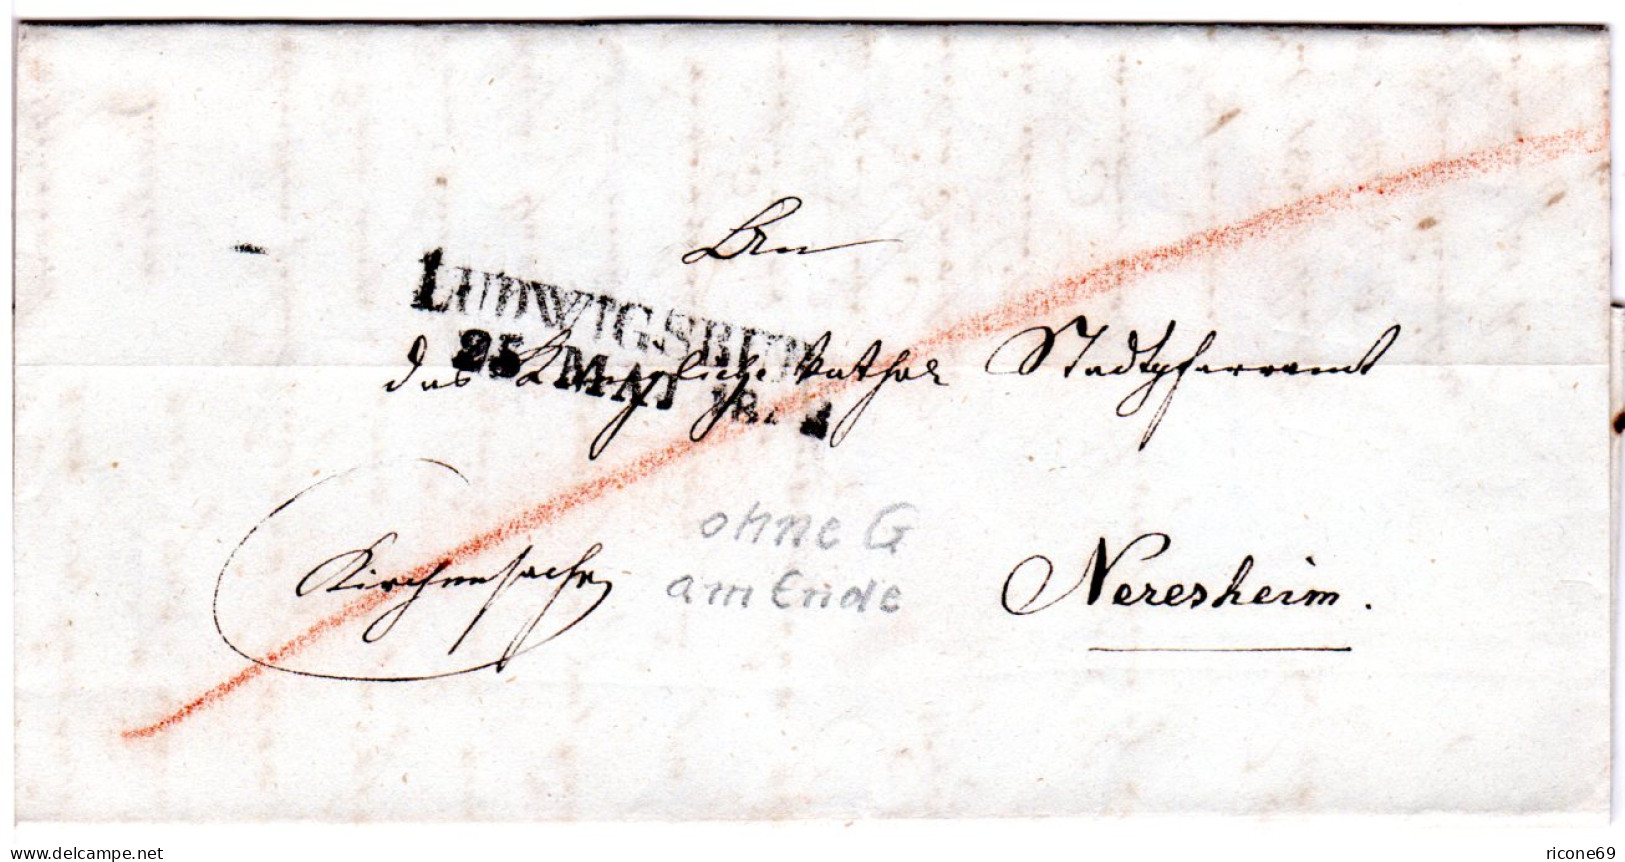 An
LUDWIGSBUR
25 MAI 18
das Königliche Kathol Stadtpfarramt
ohne G
am Ende
Kirchensache
Neresheim.
delcampe.net
ricone69